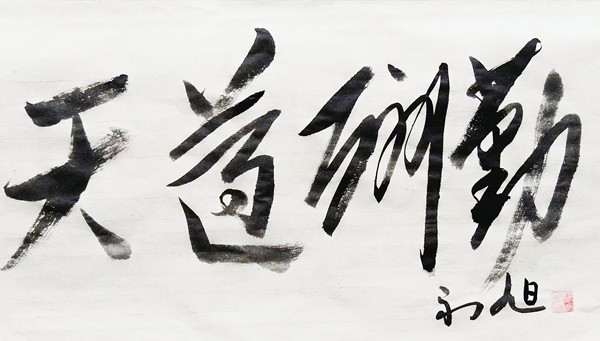 天道酬勤
永旭